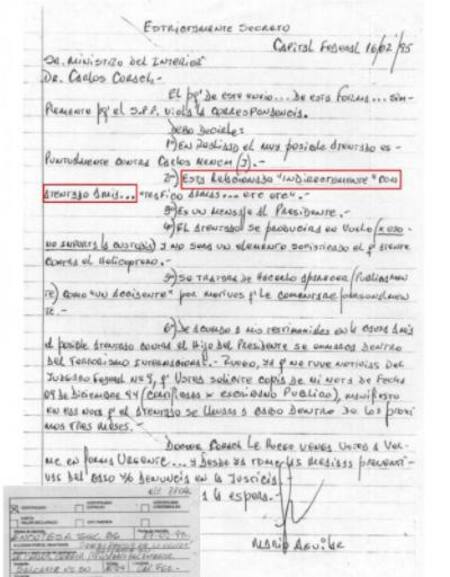 ESTRICTAMENTE SECRETO
CAPITAL FEDERAL 16/02/95
SR. MINISTRO DEL INTERIOR
DR. CARLOS CORACH.-
EL PQ' DE ESTE ENVIO... DE ESTA FORMA... SIM-
PLEMENTE PQ' EL S.P.F. VIOLA LA CORRESPONDENCIA.
DEBO DECIRLE:
1º) EN REALIDAD EL MUY POSIBLE ATENTADO ES
PUNTUALMENTE CONTRA CARLOS MENEM (J).-
2º) ESTA RELACIONADO "INDIRECTAMENTE" CON
ATENTADO AMIA... TRAFICO ARMAS... ETC ETC".-
3º) ES UN MENSAJE AL PRESIDENTE.-
4º) EL ATENTADO SE PRODUCIRA EN VUELO (X ESO
NO IMPORTA LA CUSTODIA) Y NO SERA UN ELEMENTO SOFISTICADO EL Q' ATENTE
CONTRA EL HELICOPTERO.-
5º) SE TRATARA DE HACERLO APARECER (PUBLICAMEN
TE) COMO "UN ACCIDENTE" POR MOTIVOS Q' LE COMENTARE PERSONALMEN
TE.-
6º) DE ACUERDO A MIS TESTIMONIOS EN LA CAUSA AMIA
EL POSIBLE ATENTADO CONTRA EL HIJO DEL PRESIDENTE SE ENMARCA DENTRO
DEL TERRORISMO INTERNACIONAL.- RUEGO, YA Q' NO TUVE NOTICIAS DEL
JUZGADO FEDERAL Nº 9, Q' USTED SOLICITE COPIA DE MI NOTA DE FECHA
09 DE DICIEMBRE 94 (CERTIFICADA X ESCRIBANO PUBLICO), MANIFIESTO
EN ESA NOTA Q' EL ATENTADO SE LLEVARA A CABO DENTRO DE LOS PROXI
MOS TRES MESES.-
DOCTOR CORACH LE RUEGO VENGA USTED A VER-
ME EN FORMA URGENTE... Y DESDE YA TOME LAS MEDIDAS PREVENTI
VAS DEL CASO Y/O DENUNCIA EN LA JUSTICIA
A LA ESPERA.-
MARIO AGUILAR